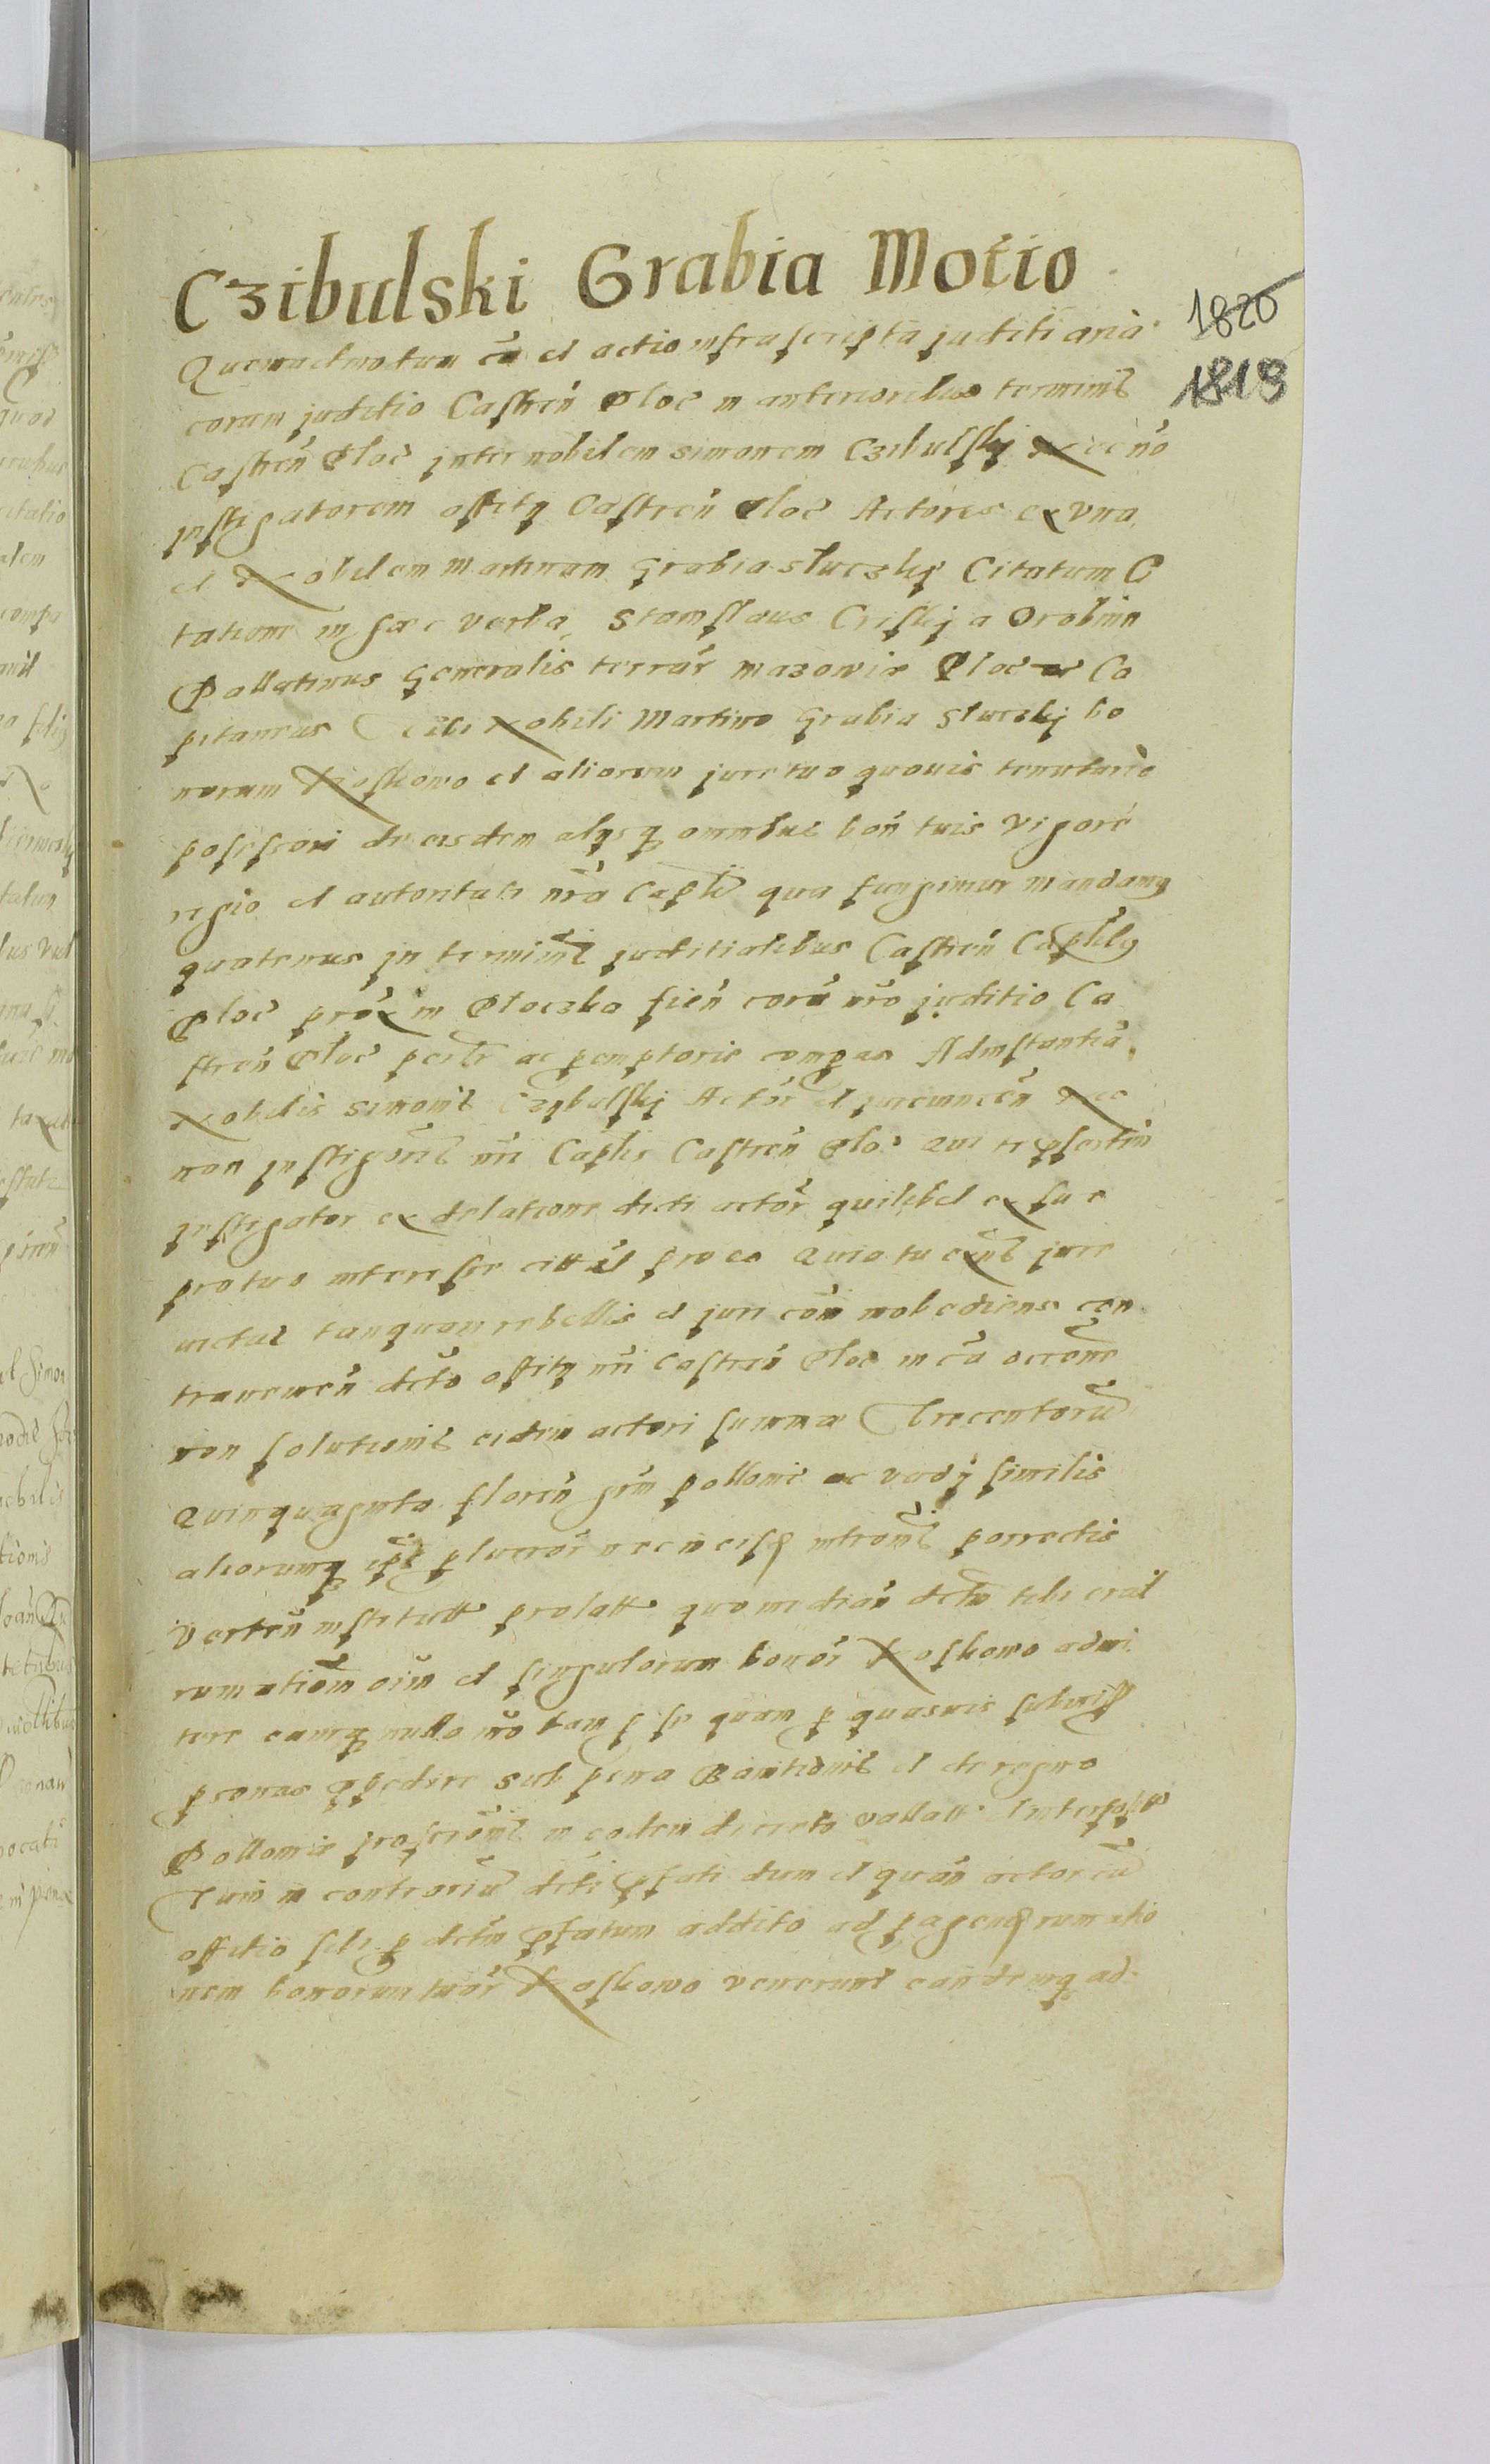 Czibulski Grabia Motio
1820
1819
Quemadmodum cũ et actio infrascripta juditiaria
coram juditio Castren̄ Ploc̄ in anterioribus terminis
Castren̄ Ploc̄ inter nobilem Simonem Czibulskj Necnō
Instigatorem offitij Castren̄ Ploc̄ Actores ex vna
et Nobilem Martinum Grabia Sluczkj Citatum C
tatione in haec verba Stanislaus Criskj a Drobnin
Pallatinus Generalis terrar̄ Mazoviæ Ploc ac Ca
pitaneus Tibi Nobili Martino Grabia Sluczkj bo
norum Noskowo et aliorum jure tuo quouis tenutario
possessori de eisdem alysq omnibus bon̄ tuis vigore
regio et autoritate nr̄a Capt̄li qua fungimur mandamq
quatenus in terminis juditialibus Castren̄ Capt̄libq
Ploc̄ prox in Ploczko fien̄ corā nr̄o juditio Ca
stren̄ Ploc̄ pert̄e ac pemptorie compas Ad instantiā
Nobilis Simonis Czybulskj Actor̄ et jurevincen̄ Nec
non Instigāris nr̄i Capt̄lis Castren̄ Ploc̄ Qui te psertim
Instigator ex delatione dicti actor̄ quilibet ex suo
pro tuo interesse citt̄ et pro eo Quia tu exn̄s jure
victus tanquam rebellis et juri cōm inobediens con
travenien̄ dc̄to offitij nr̄i Castren̄ Ploc in cā
non solutionis eidem actori summæ Trecentorū
Quinquaginta floren̄ pollonic ac vadij similis
aliorumq
Verten̄ institutt prolatt quo median̄ dc̄tm tibi erat
rumation̄ oīm et singulorum bonor̄ Noskowo admi
tere eamq nullo mō tam p se quam p quasvis submiss
psonas īpedire sub pena Banitionis et de regno
Polloniæ in eodem decreto vallatt Interposs
Tum in contrariū dc̄ti pfati dum et quan̄ actor cū
offitio sibi p dc̄tm pfatum addito ad pagend rumatio
nem bonorum tuor̄ Noskowo venerunt eandemq ad